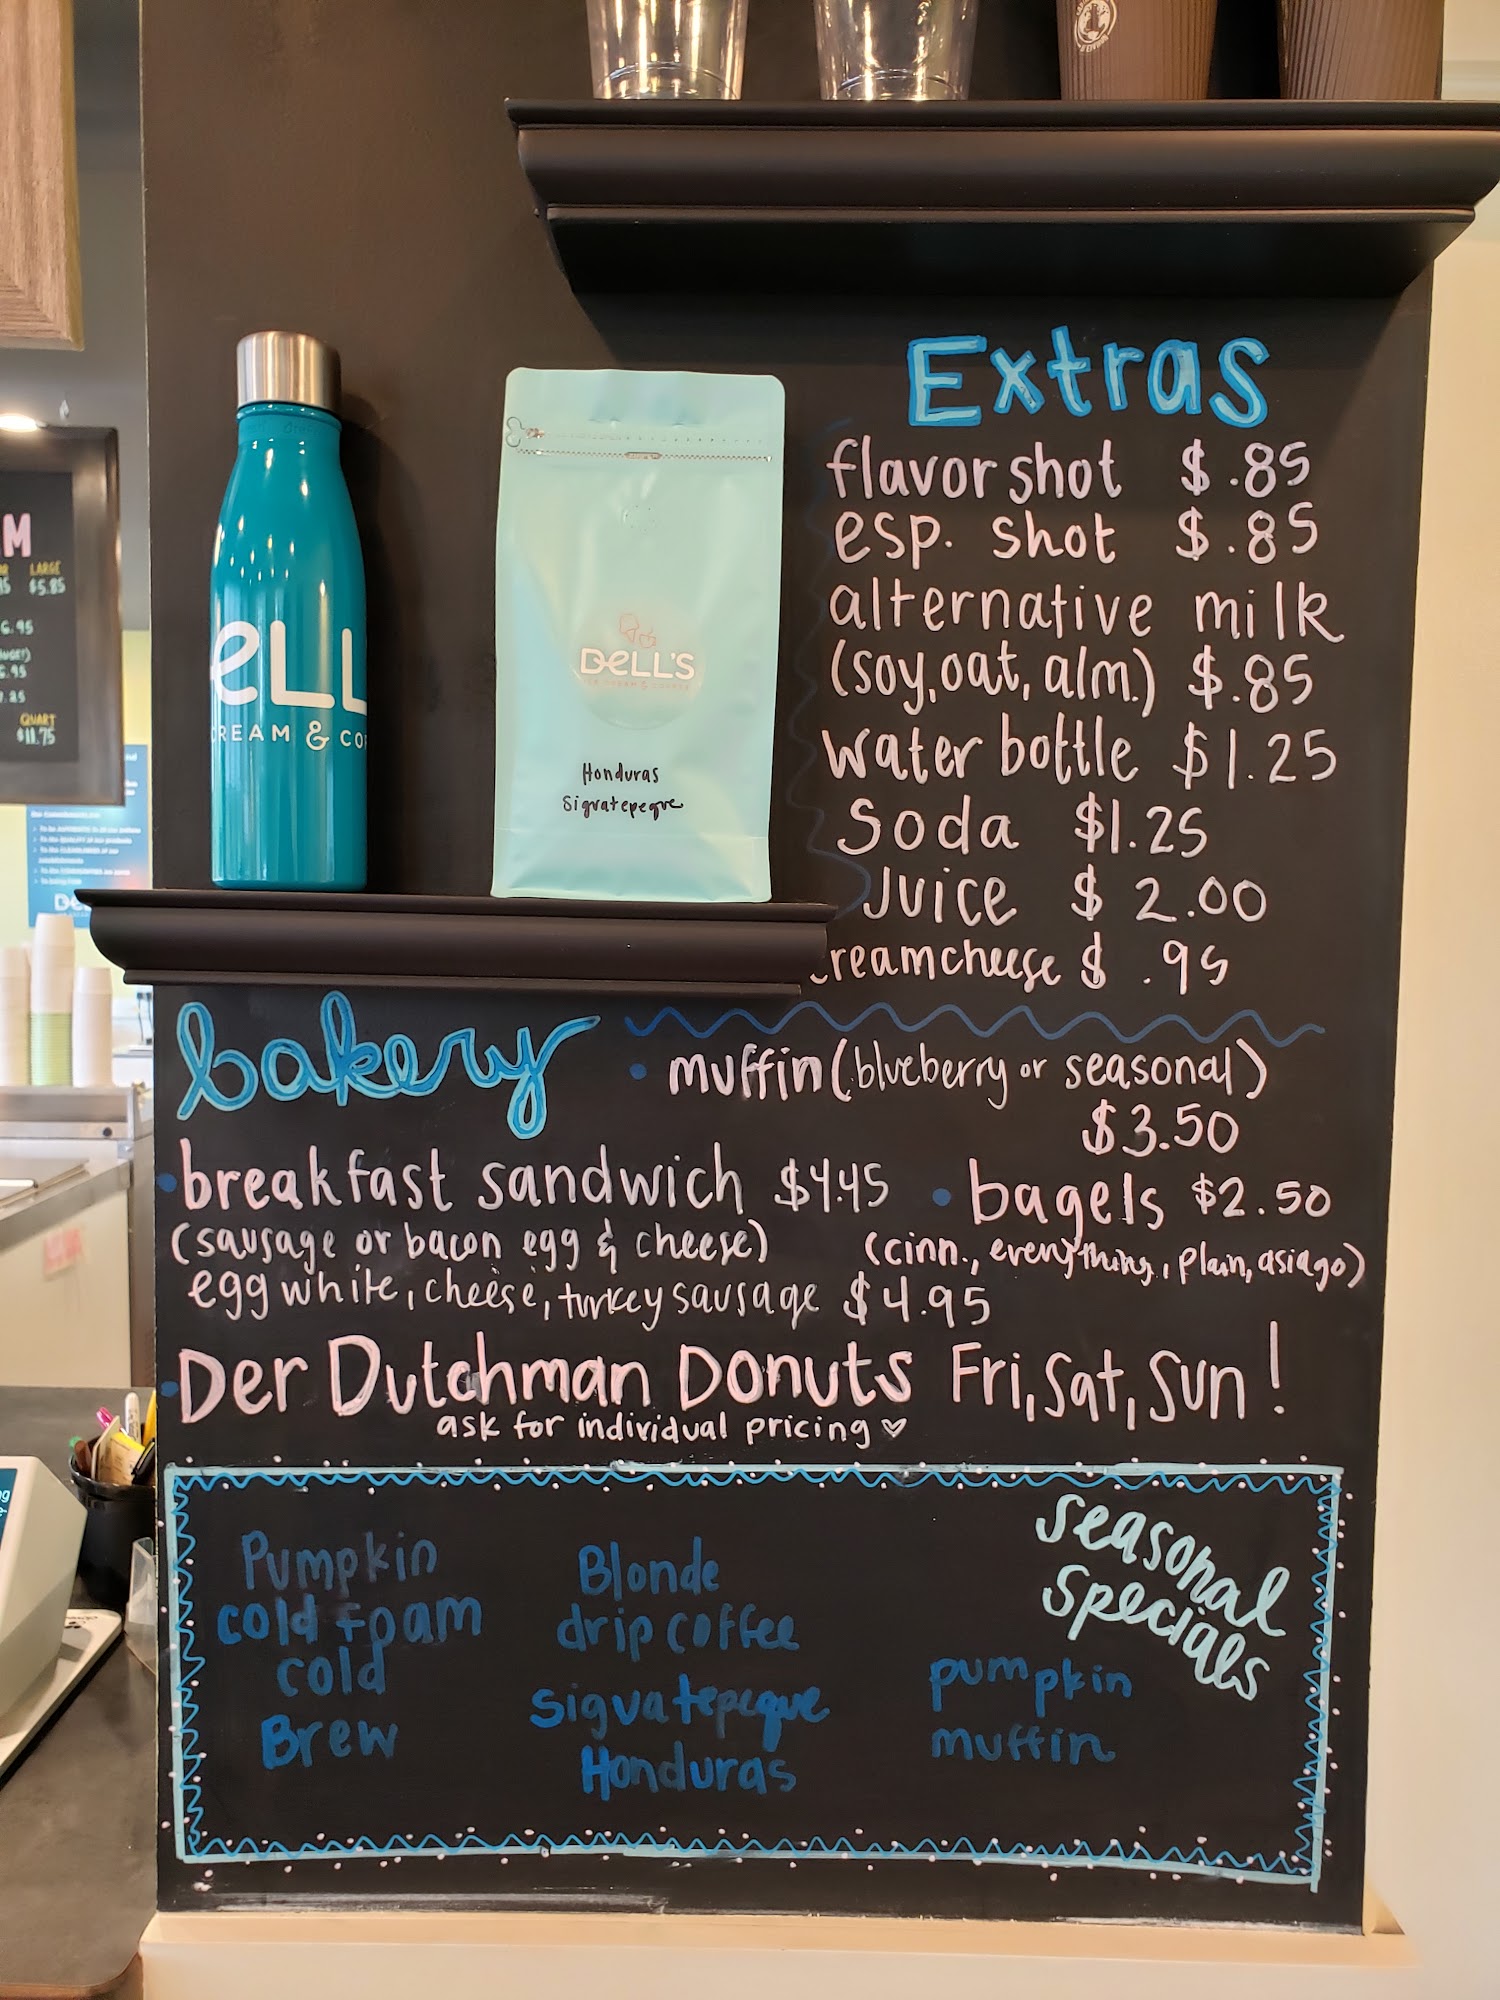 Extras
flavor shot $.85
esp. shot $.85
alternative milk
(soy, oat, alm.) $.85
water bottle $1.25
Soda $1.25
Juice $2.00
creamcheese $.95
bakery
• muffin (blueberry or seasonal)
$3.50
• breakfast sandwich $4.45
(sausage or bacon egg & cheese)
egg white, cheese, turkey sausage $4.95
• bagels $2.50
(cinn., everything, plain, asiago)
• Der Dutchman Donuts Fri, Sat, Sun!
ask for individual pricing ♡
seasonal
specials
Pumpkin
cold foam
cold
Brew
Blonde
drip coffee
sigvatepeque
Honduras
pumpkin
muffin
eLL
REAM & CO
DeLL'S
Honduras
Sigvatepeque
M
LARGE
$5.85
6.95
QUART
$11.75